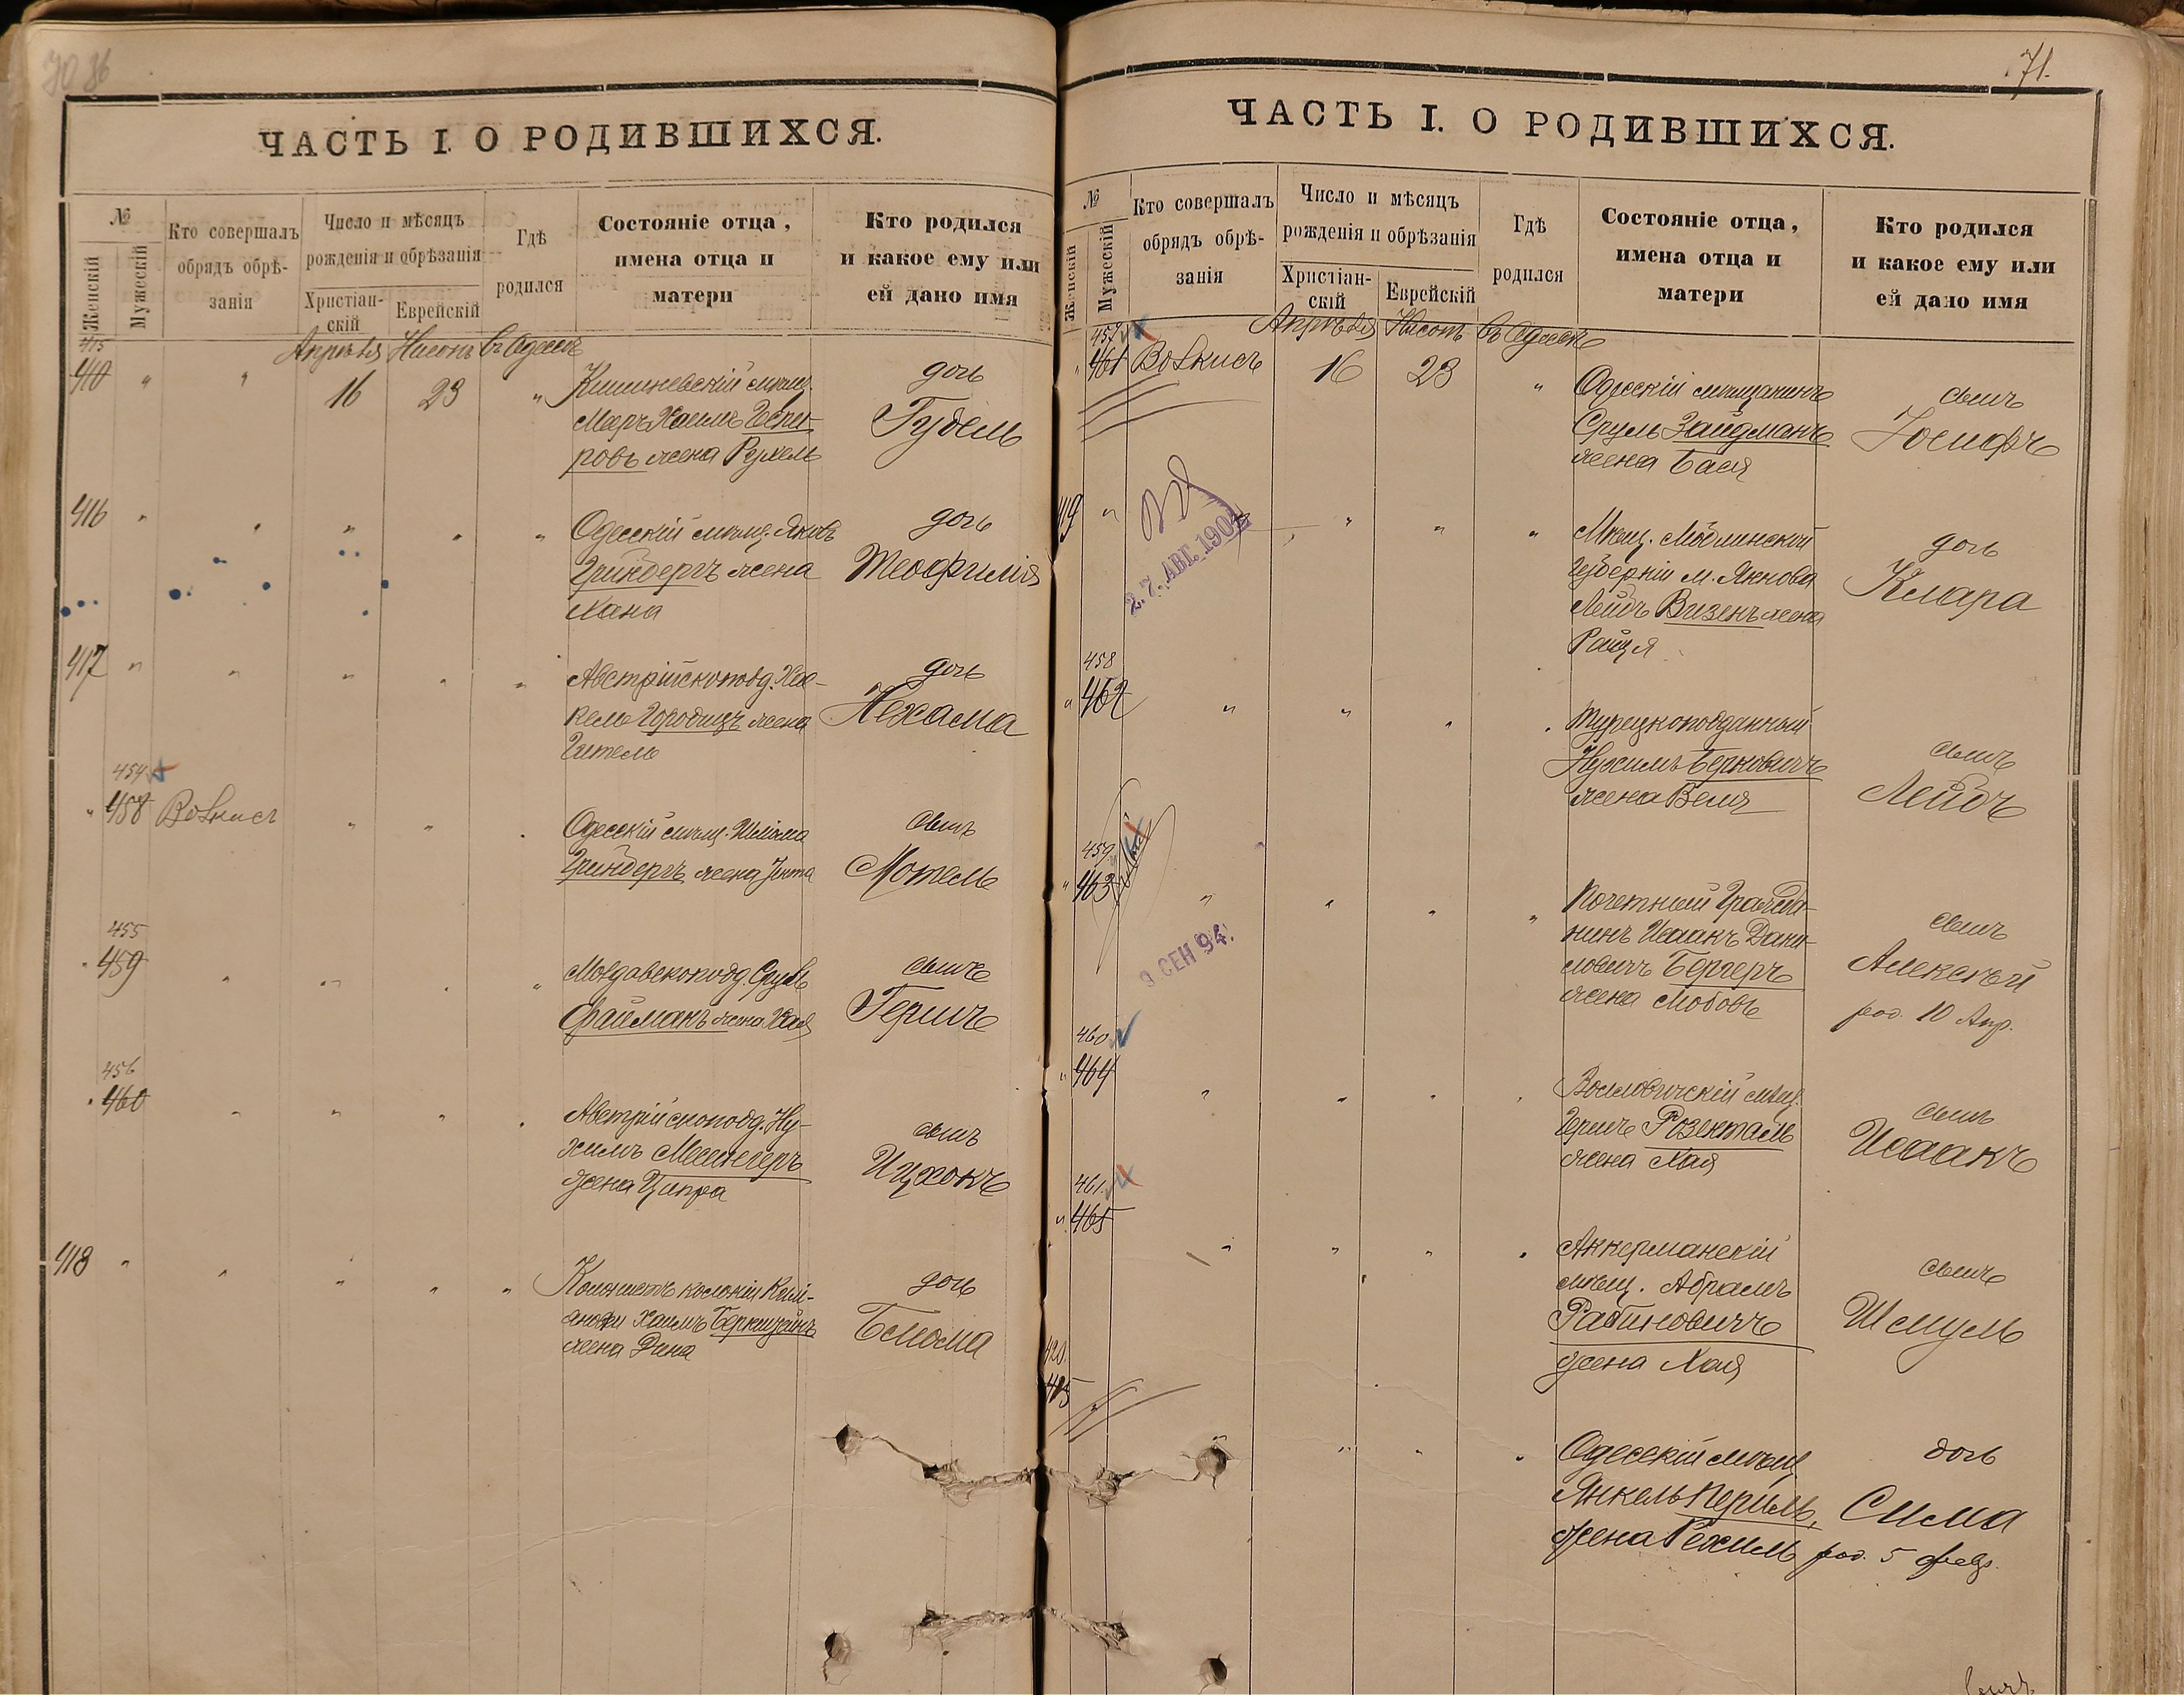 70 86
ЧАСТЬ I. О РОДИВШИХСЯ.
№
Женскій
Мужескій
Кто совершалъ
обрядъ обрѣ-
занія
Число и мѣсяцъ
рожденія и обрѣзанія
Христіан-
скій
Еврейскій
Гдѣ
родился
Состояніе отца,
имена отца и
матери
Кто родился
и какое ему или
ей дано имя
Апрѣля Нисонъ въ Одессѣ
415
410 " " 16 23 "
Кишиневскій мѣщ.
жена Рухель
дочь
Гудель
416 " " " " "
Одесскій мѣщ.
Гринбергъ жена
Хана
дочь
Теофилія
417 " " " " "
Австрійскоподд. Хас-
кель Городищъ жена
Гитель
дочь
Нехама
454
" 458 Волкисъ " " "
Одесскій мѣщ. Шлема
Гринбергъ жена Jента
сынъ
Мотель
455
" 459 " " " "
Молдавскоподд. Сруль
Файманъ жена Хая
сынъ
Гершъ
456
" 460 " " " "
Австрійскоподд. Ну-
химъ Месингеръ
жена Ципра
сынъ
Ицхокъ
418 " " " " "
Колонистъ колоніи
Хаимъ Беркштейнъ
жена Дина
дочь
Блюма
71.
ЧАСТЬ I. О РОДИВШИХСЯ.
№
Женскій
Мужескій
Кто совершалъ
обрядъ обрѣ-
занія
Число и мѣсяцъ
рожденія и обрѣзанія
Христіан-
скій
Еврейскій
Гдѣ
родился
Состояніе отца,
имена отца и
матери
Кто родился
и какое ему или
ей дано имя
Апрѣля Нисонъ въ Одессѣ
457
" 461 Волкисъ 16 23 "
Одесскій мѣщанинъ
Сруль Зайдманъ
жена Бася
сынъ
Іосифъ
419 " " " "
27. АВГ. 1904
Мѣщ.
губерніи м. Янова
Лейбъ Визенъ жена
Райця
дочь
Клара
458
" 462 " " " "
Турецкоподданный
Нухимъ Берковичъ
жена Беля
сынъ
Лейбъ
459
" 463 " " " "
9 СЕН 94.
Почетный Гражда-
нинъ Исаакъ Дани-
ловичъ Бергеръ
жена Любовь
сынъ
Алексѣй
род. 10 Апр.
460
" 464 " " " "
мѣщ.
Гершъ Розенталь
жена Хая
сынъ
Исаакъ
461.
" 465 " " " "
Аккерманскій
мѣщ. Абрамъ
Рабиновичъ
жена Хая
сынъ
Шмуль
420.
415 " " " " "
Одесскій мѣщ.
Янкель Перель,
жена Рехиль
дочь
Сима
род. 5 февр.